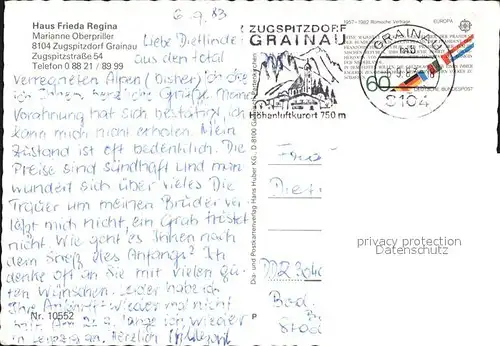 Haus Frieda Regina
Marianne Oberpriller
8104 Zugspitzdorf Grainau
Zugspitzstraße 54
Telefon 0 88 21 / 89 99
6.9.83
Liebe Dietlinde
aus den total
verregneten Alpen (bisher) ich
ich Ihnen herzliche Grüße. Meine
Vorahnung hat sich bestätigt, ich
kann mich nicht erholen. Mein
Zustand ist oft bedenklich. Die
Preise sind sündhaft und man
wundert sich über vieles Die
Trauer um meinen Bruder ver-
läßt mich nicht, ein Grab tröstet
nicht. Wie geht es Ihnen nach
dem Streß des Anfangs? Ich
denke oft an Sie mit vielen gu-
ten Wünschen. Leider habe ich
Ihre wieder mal nicht
mit. Am ich wieder
in Leipzig an. Herzlich
Nr. 10552
ZUGSPITZDORF
GRAINAU
Höhenluftkurort 750 m
GRAINAU
mb
6.9.83
8104
1957-1982 Römische Verträge
EUROPA
60
DEUTSCHE BUNDESPOST
Dia- und Postkartenverlag Hans Huber KG., D-8100 Garmisch-Partenkirchen
Frau
Diet
DDR 3040
Bad.
privacy protection
Datenschutz
P